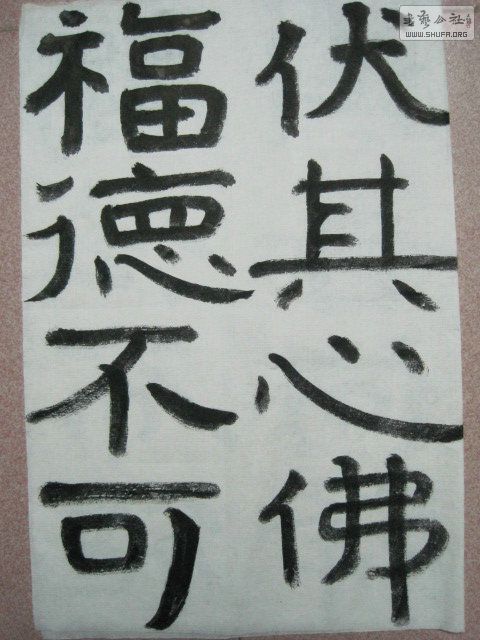 伏其心佛
福德不可
书艺公社
WWW.SHUFA.ORG